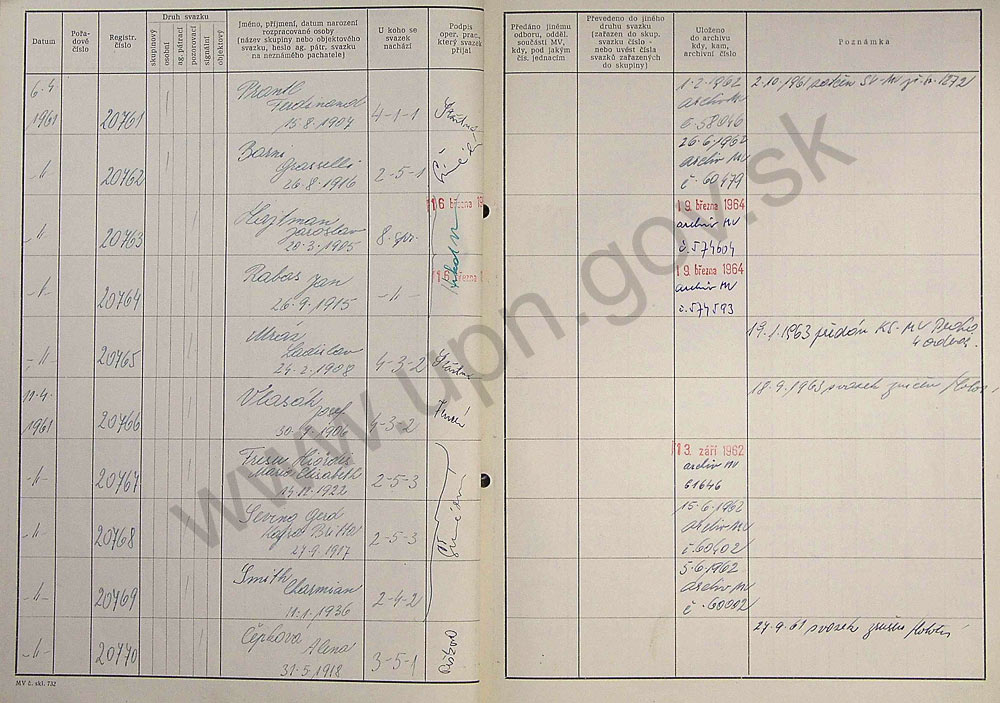 Datum
Pořa-
dové
číslo
Registr.
číslo
Druh svazku
skupinový
osobní
ag. pátrací
pozorovací
signální
objektový
Jméno, příjmení, datum narození
rozpracované osoby
(název skupiny nebo objektového
svazku, heslo ag. pátr. svazku
na neznámého pachatele)
U koho se
svazek
nachází
Podpis
oper. prac.,
který svazek
přijal
Předáno jinému
odboru, odděl.
součásti MV,
kdy, pod jakým
čís. jednacím
Převedeno do jiného
druhu svazku
(zařazen do skup.
svazku číslo -
nebo uvést čísla
svazků zařazených
do skupiny)
Uloženo
do archivu
kdy, kam,
archivní číslo
Poznámka
6.4
1961
20761
Prantl
Ferdinand
15.8.1907
4-1-1
1.2.1962
archiv MV
č. 58046
2.10.1961
-"-
20762
Barni
Grasselli
26.8.1916
2-5-1
26.6.1962
archiv MV
č. 60479
-"-
20763
Jaroslav
20.3.1905
8. spr.
16 března 19
19. března 1964
archiv MV
č. 574604
-"-
20764
Rabas Jan
26.9.1915
-"-
16. března
19. března 1964
archiv MV
č. 574593
-"-
20765
Mráz
Ladislav
24.2.1908
4-3-2
19.1.1963 předán KS-MV Praha
4 odbor.
11.4.
1961
20766
Vlasák
Josef
4-3-2
18.9.1963 svazek zničen
-"-
20767
Marie Elisabeth
14.12.1922
2-5-3
13. září 1962
archiv MV
61646
-"-
20768
Gerd
Britta
27.9.1917
2-5-3
15.6.1962
archiv MV
č. 60402
-"-
20769
Smith
Charmian
11.1.1936
2-4-2
5.6.1962
archiv MV
č. 60002
-"-
20770
Čepková
Alena
31.5.1918
3-5-1
27.9.61 svazek
MV č. skl. 732
www.upn.gov.sk